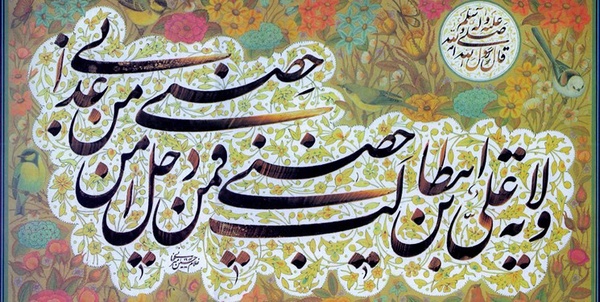 قال رسول الله صلی الله علیه و آله وسلم
ولایة علیّ بن ابیطالب حصنی فمن دخل حِصنی امن من عذابی